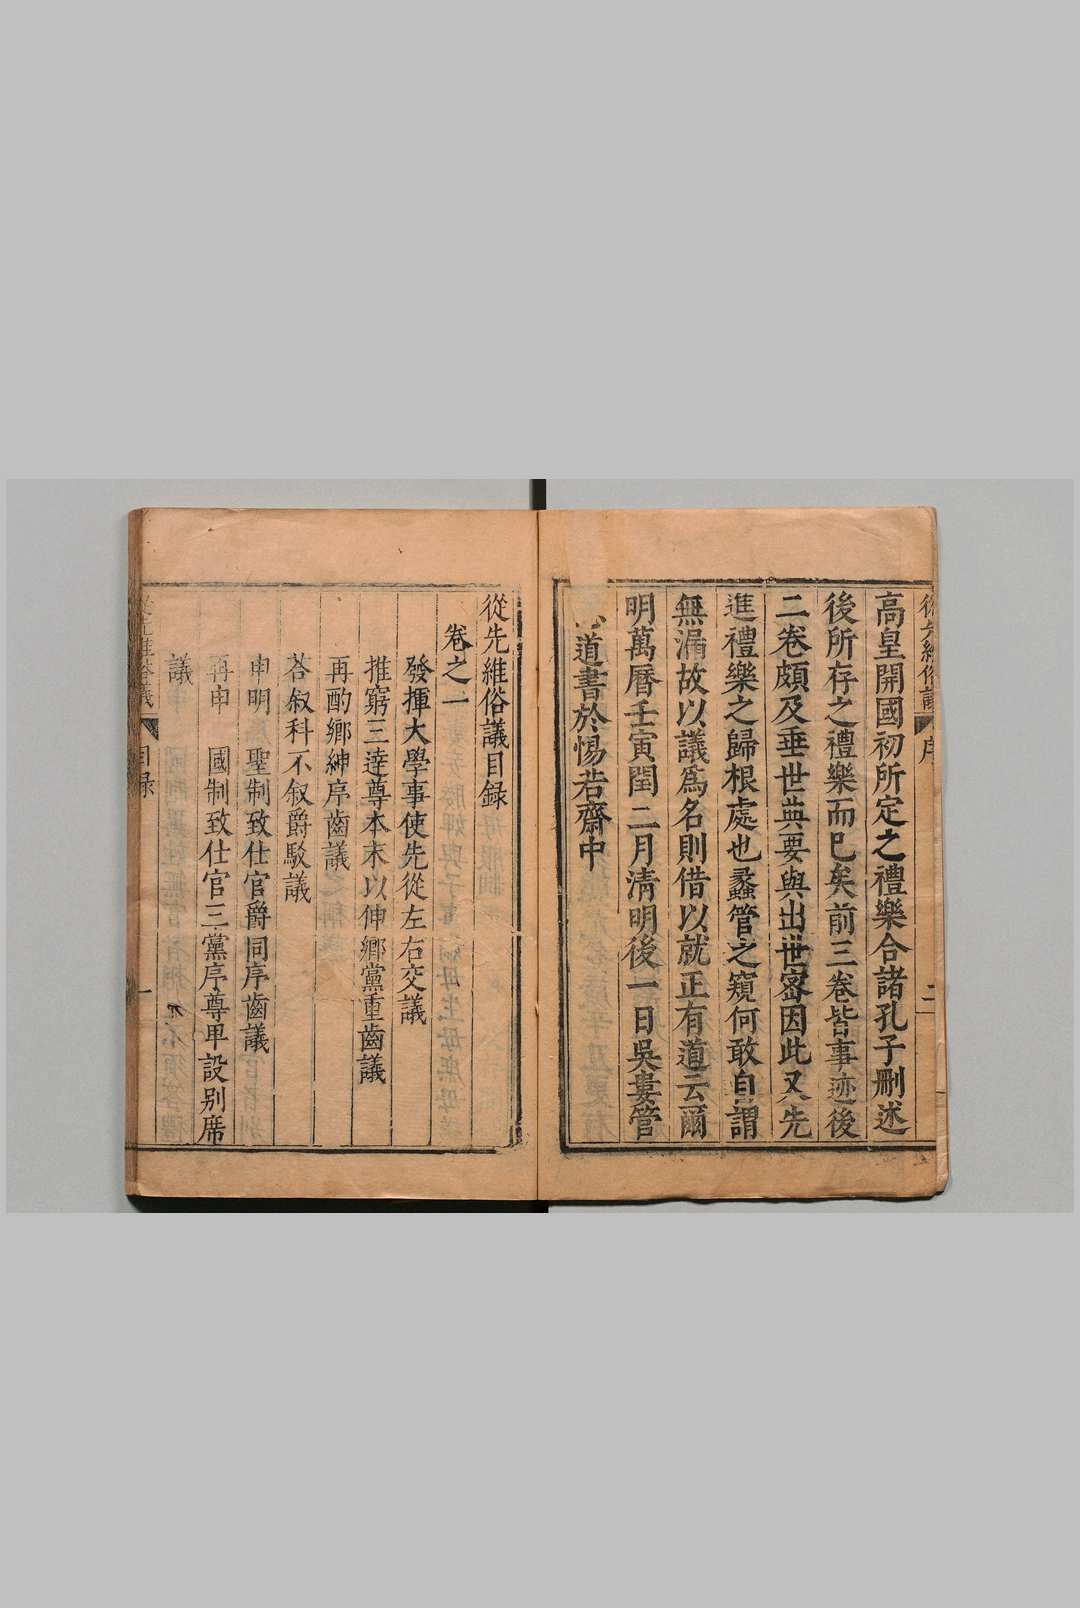 高皇開國初所定之禮樂合諸孔子刪述
後所存之禮樂而已矣前三卷皆事迹後
二卷頗及垂世典要與出世密因此又先
進禮樂之歸根處也蠡管之窺何敢自謂
無漏故以議爲名則借以就正有道云爾
明萬曆壬寅閏二月清明後一日吳婁管
志道書於惕若齋中
序
二
從先維俗議目録
卷之一
發揮大學事使先從左右交議
推窮三達尊本末以伸鄉黨重齒議
再酌鄉紳序齒議
荅叙科不叙爵駁議
申明 聖制致仕官爵同序齒議
再申 國制致仕官三黨序尊卑設别席
議
從先維俗議
目録
一